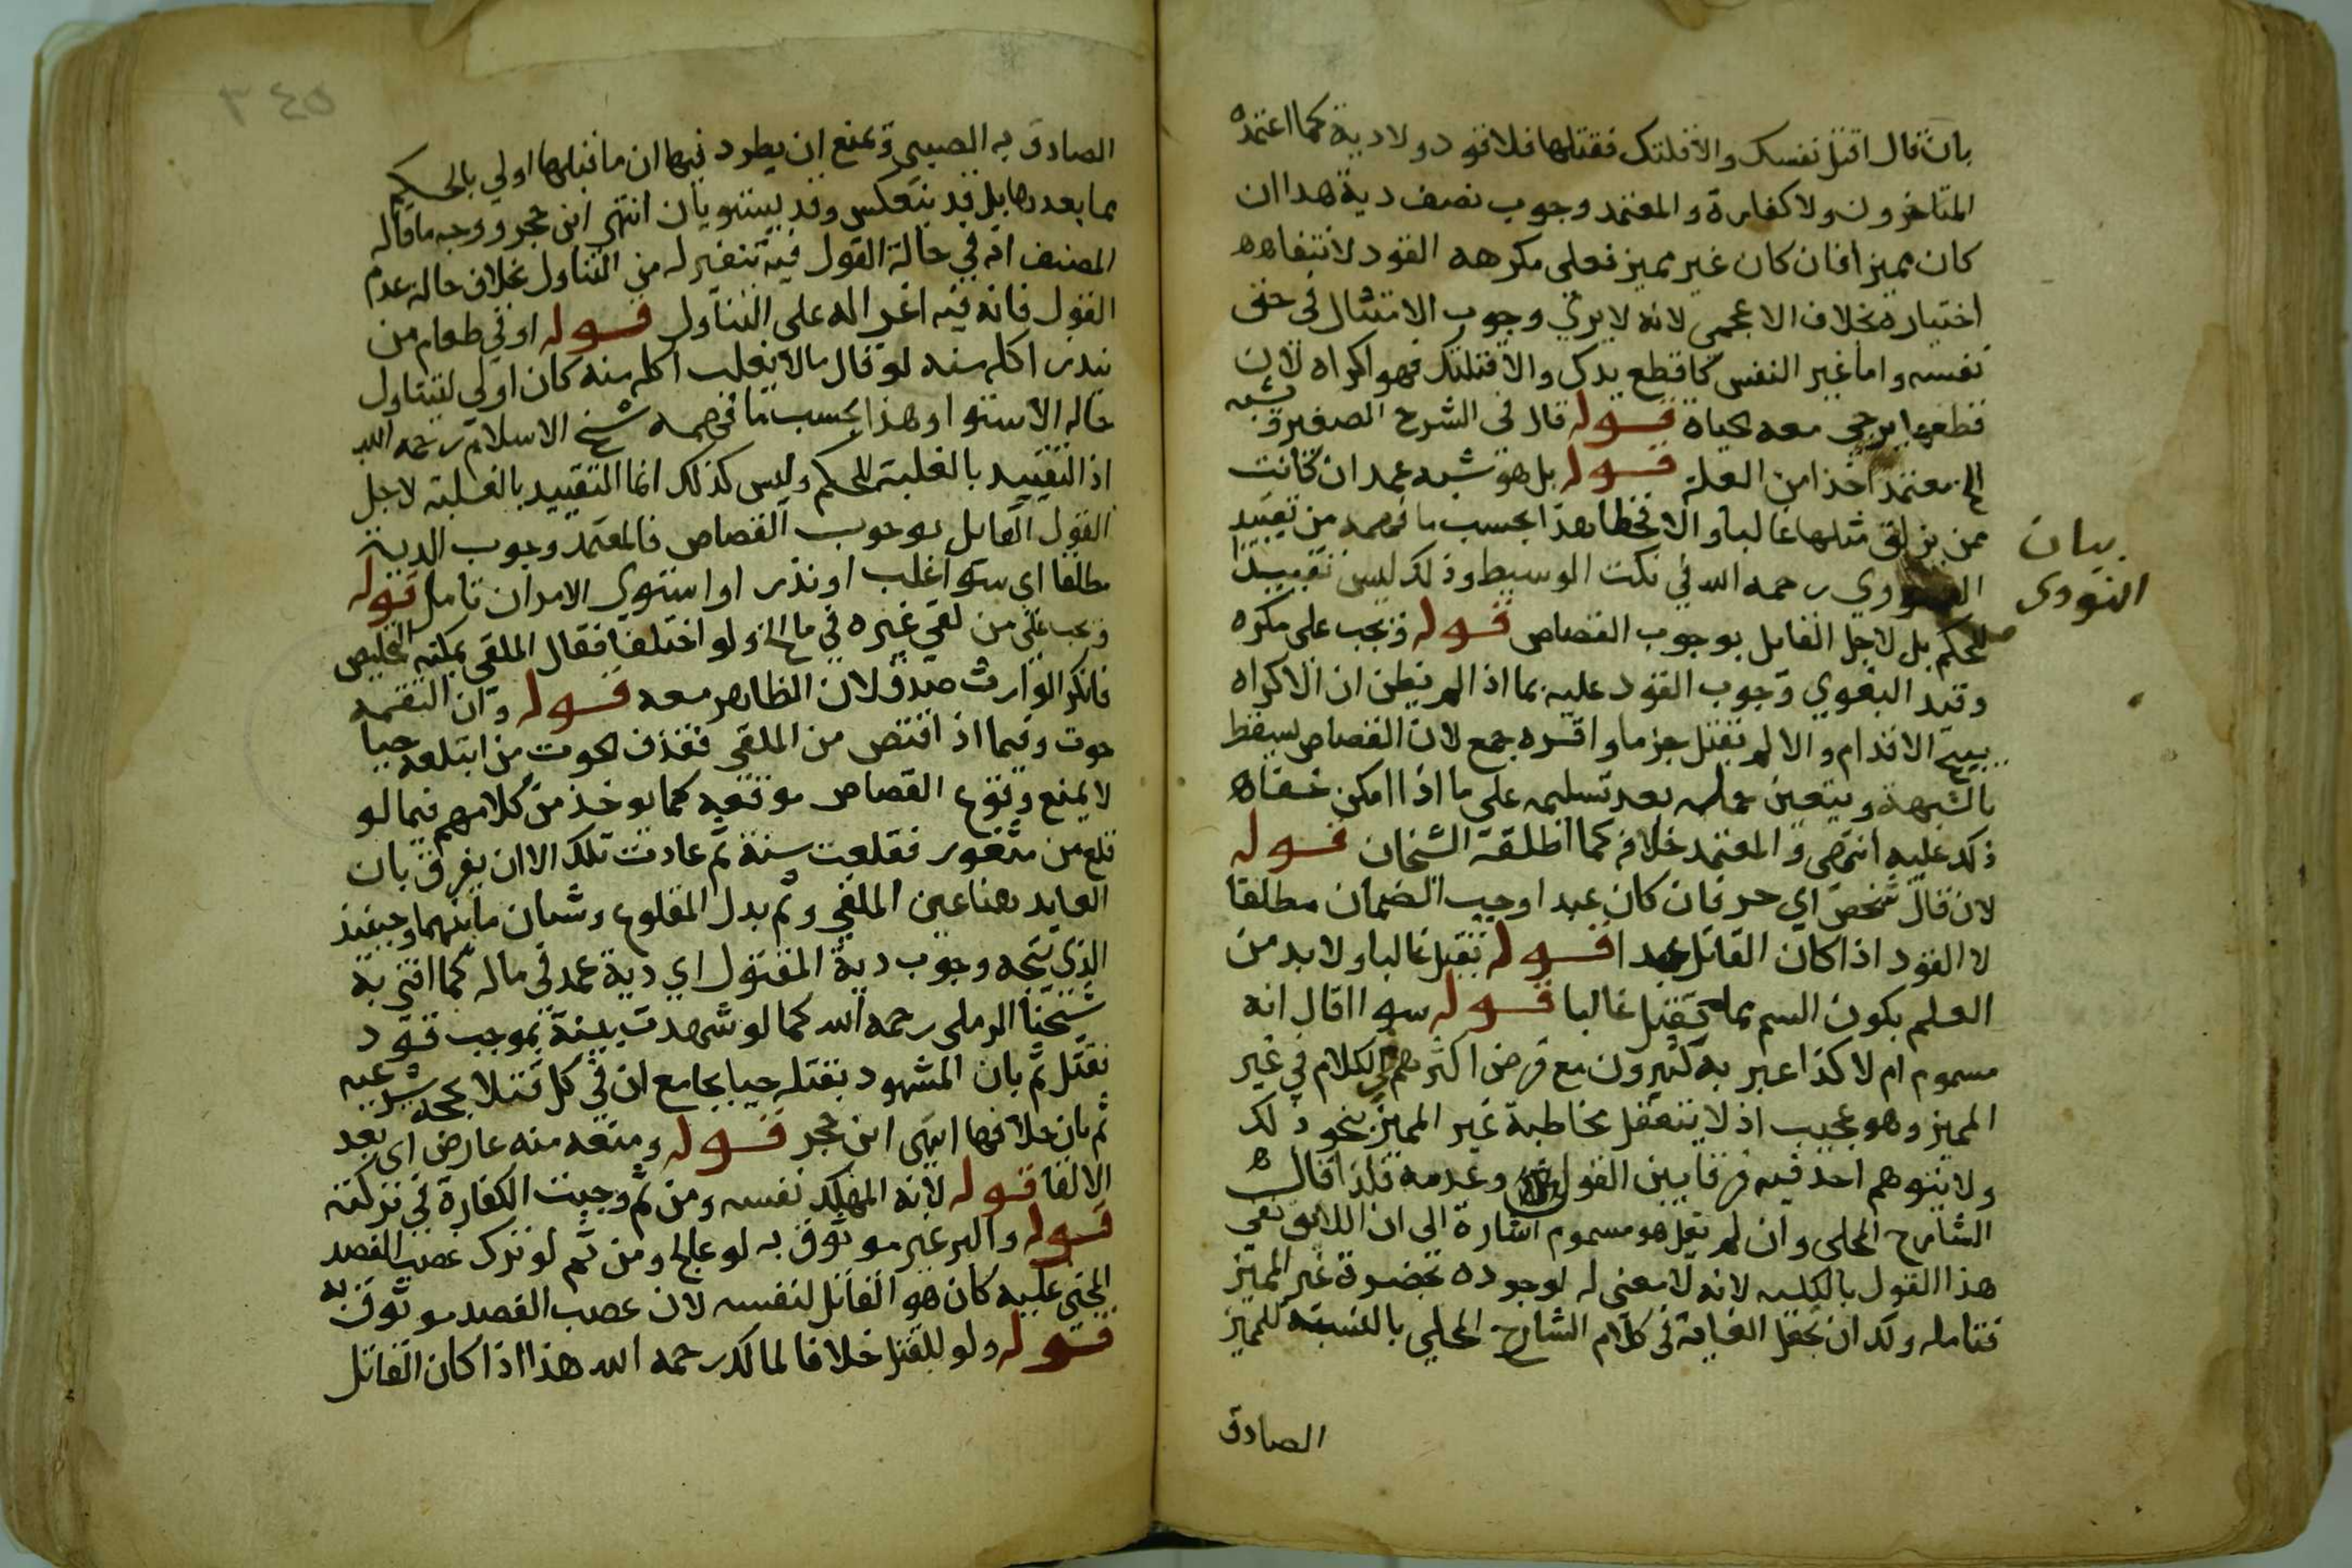 بان قال اقتل نفسك والا قتلتك فقتلها فلا قود ولا دية كما اعتمده
المتاخرون ولا كفارة والمعتمد وجوب نصف دية هذا ان
كان مميزا فان كان غير مميز فعلى مكرهه القود لانتفاء
اختياره بخلاف الاعجمي لانه لا يري وجوب الامتثال في حق
نفسه واما غير النفس كاقطع يدك والا قتلتك فهو اكراه لان
قطعها يرجى معه حياة قوله قال في الشرح الصغير ويشبه
الخ معتمد اخذا من العلة قوله بل هو شبه عمد ان كانت
ممن يزلق مثلها غالبا والا فخطا هذا بحسب ما فهمه من تقييد
النووي رحمه الله في نكت الوسيط وذلك ليس تقييدا
للحكم بل لاجل القايل بوجوب القصاص قوله ويجب على مكره
وقيد البغوي وجوب القود عليه بما اذا لم يظن ان الاكراه
يبيح الاقدام والا لم يقتل جزما واقره جمع لان القصاص يسقط
بالشبهة ويتعين حمله بعد تسليمه على ما اذا امكن خفاء
ذلك عليه انتهى والمعتمد خلافه كما اطلقه الشيخان قوله
لان قال شخص اي حر فان كان عبدا وجب الضمان مطلقا
لا القود اذا كان القاتل عبدا قوله يقتل غالبا ولا بد من
العلم بكون السم مما يقتل غالبا قوله سوا اقال انه
مسموم ام لا كذا عبر به كثيرون مع فرض اكثرهم الكلام في غير
المميز وهو عجيب اذ لا يتعقل مخاطبة غير المميز بنحو ذلك
ولا يتوهم احد فيه فرقا بين القول وعدمه فلذا قال
الشارح المحلي وان لم يقل هو مسموم اشارة الى ان اللايق نفي
هذا القول بالكليه لانه لا معنى له لوجوده بحضرة غير المميز
فتامله ولك ان تجعل الغاية في كلام الشارح المحلي بالنسبة للمميز
الصادق
بيان
النووى
٣٤٥
الصادق به الصبي ويمنع ان يطرد فيها ان ما قبلها اولي بالحكم
مما بعدها بل قد ينعكس وقد يستويان انتهى ابن حجر ووجه ما قاله
المصنف انه في حالة القول فيه تنفير له من التناول بخلاف حالة عدم
القول فانه فيه اغرا له على التناول قوله او في طعام من
يندر اكله منه لو قال ما لا يغلب اكله منه كان اولي ليتناول
حالة الاستوا وهذا بحسب ما فهمه شيخ الاسلام رحمه الله
اذ التقييد بالغلبة للحكم وليس كذلك انما التقييد بالغلبة لاجل
القول القايل بوجوب القصاص فالمعتمد وجوب الدية
مطلقا اي سوا غلب او ندر او استوي الامران تامل قوله
ويجب على من لقي غيره في ما الخ ولو اختلفا فقال الملقي يمكنه التخليص
فانكر الوارث صدق لان الظاهر معه قوله وان التقمه
حوت وفيما اذا اقتص من الملقي فقذف الحوت من ابتلعه حيا
لا يمنع وقوع القصاص موقعه كما يوخذ من كلامهم فيما لو
قلع سن مثغور فقلعت سنه ثم عادت تلك الا ان يفرق بان
العايد هنا عين الملقي وثم بدل المقلوع وشتان ما بينهما وحينئذ
الذي يتجه وجوب دية المقتول اي دية عمد في ماله كما افتى به
شيخنا الرملي رحمه الله كما لو شهدت بينة بموجب قود
فقتل ثم بان المشهود بقتله حيا بجامع ان في كل قتلا بحجه شرعيه
ثم بان خلافها انتهى ابن حجر قوله ومنعه منه عارض اي بعد
الالقا قوله لانه المهلك نفسه ومن ثم وجبت الكفارة في تركته
قوله والبر غير موثوق به لو عالج ومن ثم لو ترك عصب الفصد
المجني عليه كان هو القاتل لنفسه لان عصب الفصد موثوق به
قوله ولو للقتل خلافا لمالك رحمه الله هذا اذا كان القاتل